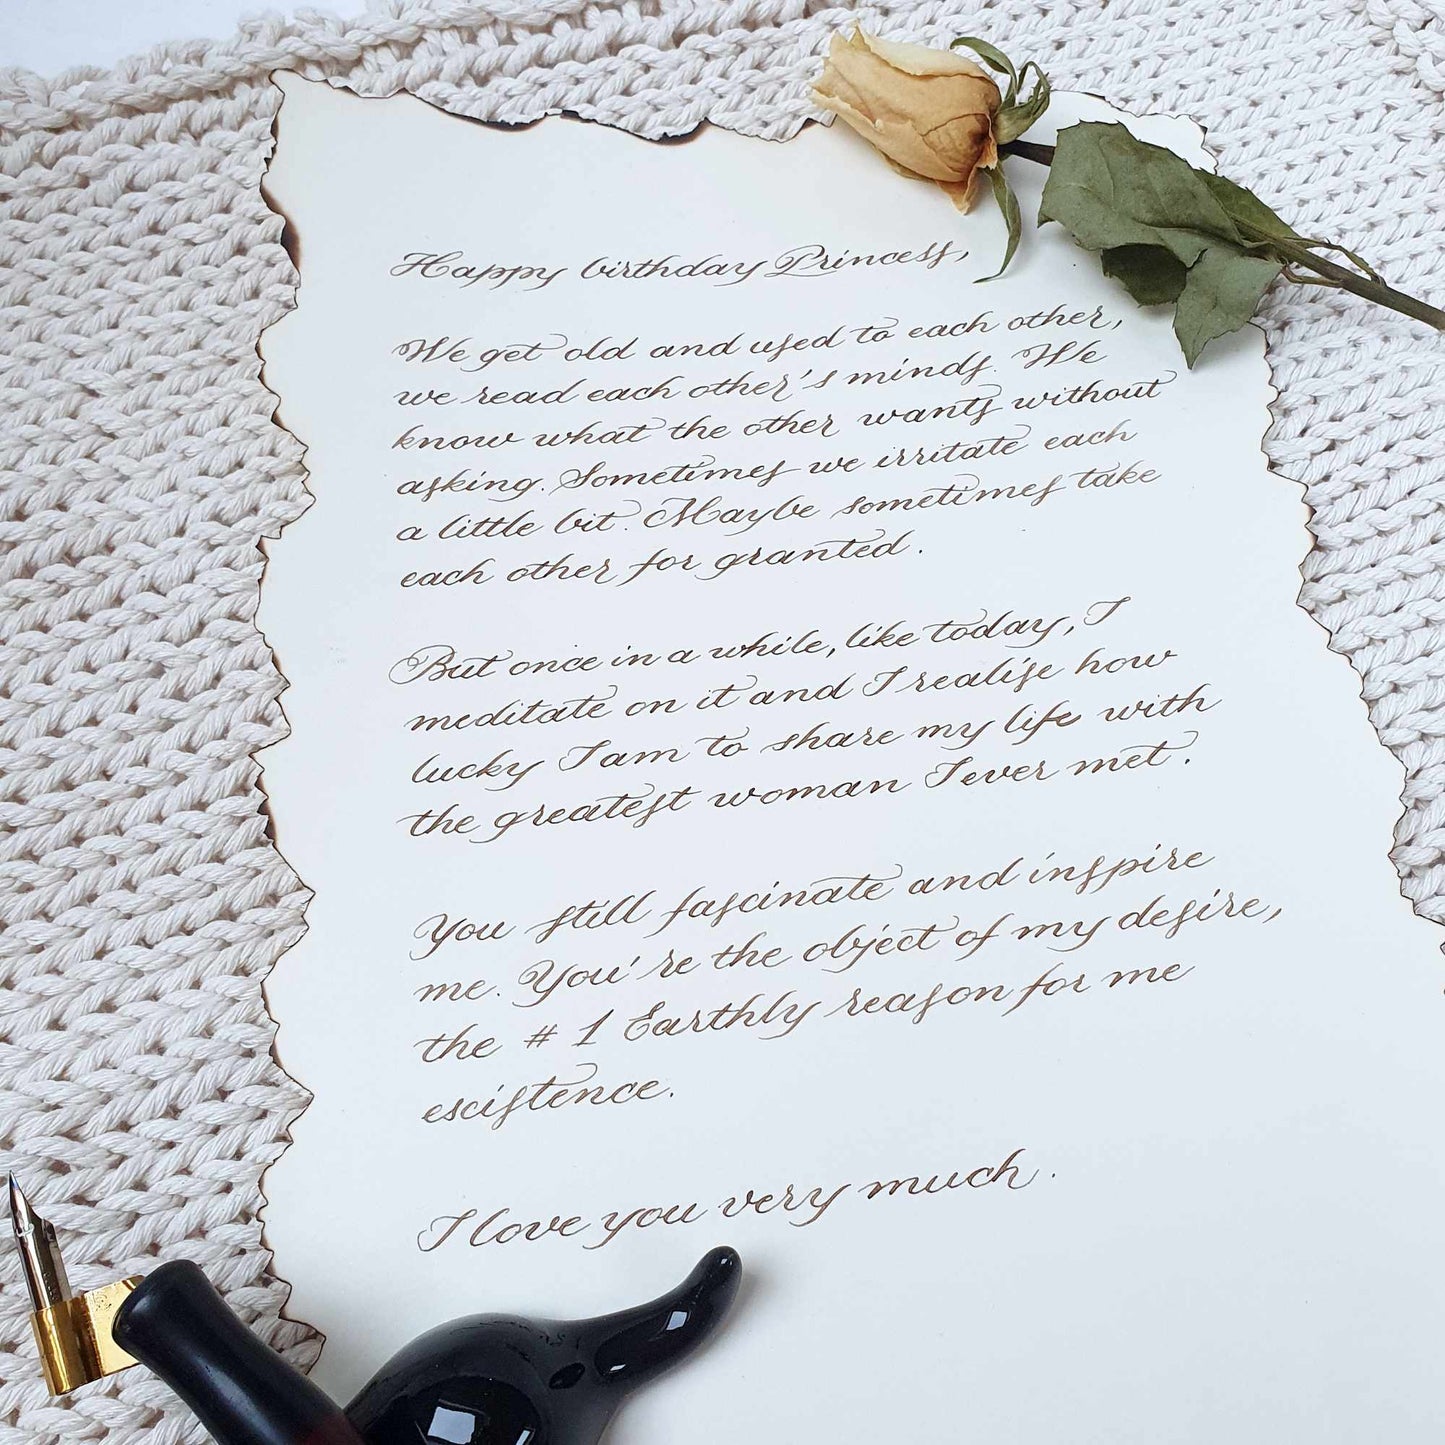 Happy birthday Princess,
We get old and used to each other,
we read each other's minds. We
know what the other wants without
asking. Sometimes we irritate each
a little bit. Maybe sometimes take
each other for granted.
But once in a while, like today, I
meditate on it and I realise how
lucky I am to share my life with
the greatest woman I ever met.
You still fascinate and inspire
me. You're the object of my desire,
the #1 Earthly reason for me
existence.
I love you very much.